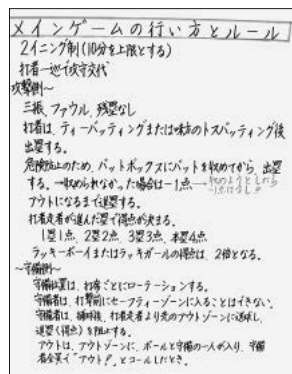 メインゲームの行い方とルール
2イニング制(10分を上限とする)
打者一巡で攻守交代
攻撃側～
三振、ファウル、残塁なし
打者は、ティーバッティングまたは味方のトスバッティング後
出塁する。
危険防止のため、バットボックスにバットを収めてから、出塁
する。→収められなかった場合は−1点→
アウトになるまで進塁する。
打者走者が進んだ塁で得点が決まる。
1塁1点、2塁2点、3塁3点、本塁4点
ラッキーボーイまたはラッキガールの得点は、2倍となる。
～守備側～
守備位置は、打者ごとにローテーションする。
守備者は、打撃前にセーフティーゾーンに入ることはできない。
守備者は、捕球後、打者走者より先のアウトゾーンに送球し、
進塁(得点)を阻止する。
アウトは、アウトゾーンに、ボールと守備の一人が入り、守備
者全員で"アウト!"とコールしたとき。